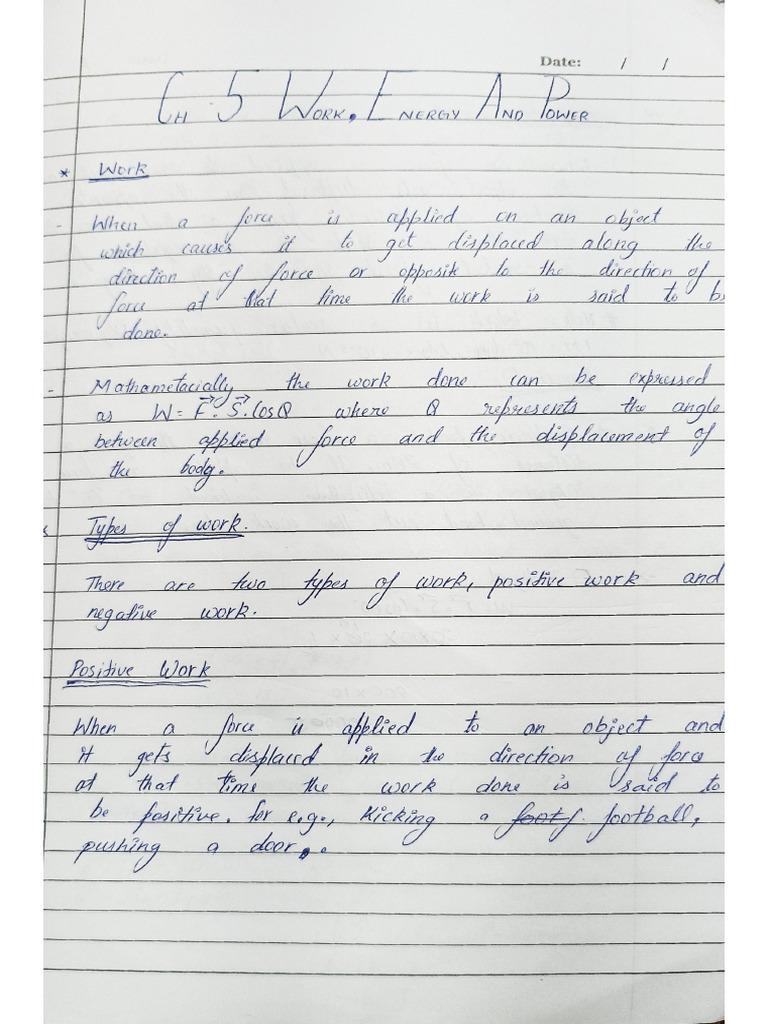 Date: / /
CH 5 WORK, ENERGY AND POWER
* Work
- When a force is applied on an object
which causes it to get displaced along the
direction of force or opposite to the direction of
force at that time the work is said to be
done.
- Mathametacially the work done can be expressed
as W = F⃗ . S⃗ . CosQ where Q represents the angle
between applied force and the displacement of
the body.
* Types of work.
There are two types of work, positive work and
negative work.
Positive Work
When a force is applied to an object and
it gets displaced in the direction of force
at that time the work done is said to
be positive. for e.g., Kicking a foot f football,
pushing a door..